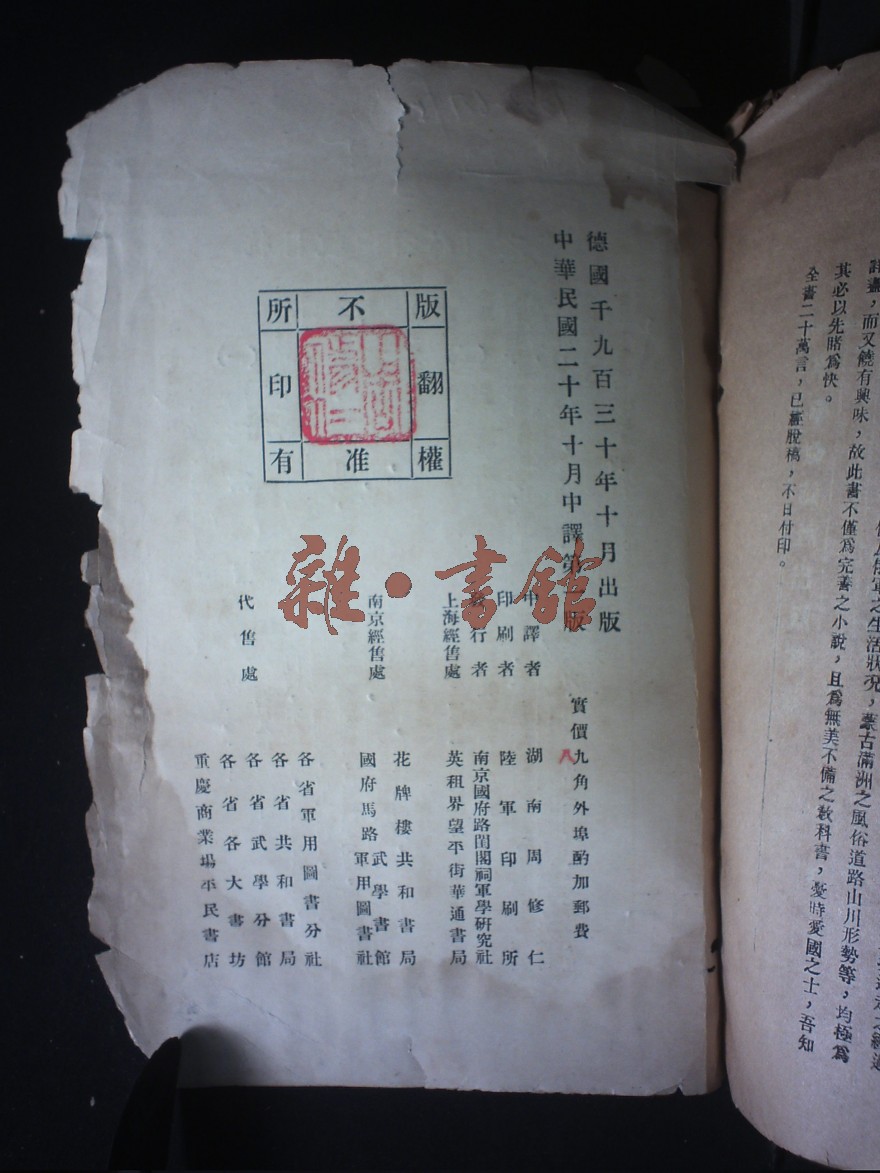 全書二十萬言，已經脫稿，不日付印。
其必以先睹爲快。
味，故此書不僅爲完善之小說，且爲無美不備之教科書，憂時愛國之士，吾知
軍之生活狀況，蒙古滿洲之風俗道路山川形勢等，均極爲
德國千九百三十年十月出版
中華民國二十年十月中譯第一版
實價九角外埠酌加郵費
八
中譯者 湖南周修仁
印刷者 陸軍印刷所
發行者 南京國府路閨閣祠軍學研究社
上海經售處 英租界望平街華通書局
南京經售處 花牌樓共和書局
武學書館
國府馬路軍用圖書社
代售處 各省軍用圖書分社
各省共和書局
各省武學分館
各省各大書坊
重慶商業場平民書店
版權所有
不准翻印
雜·書館